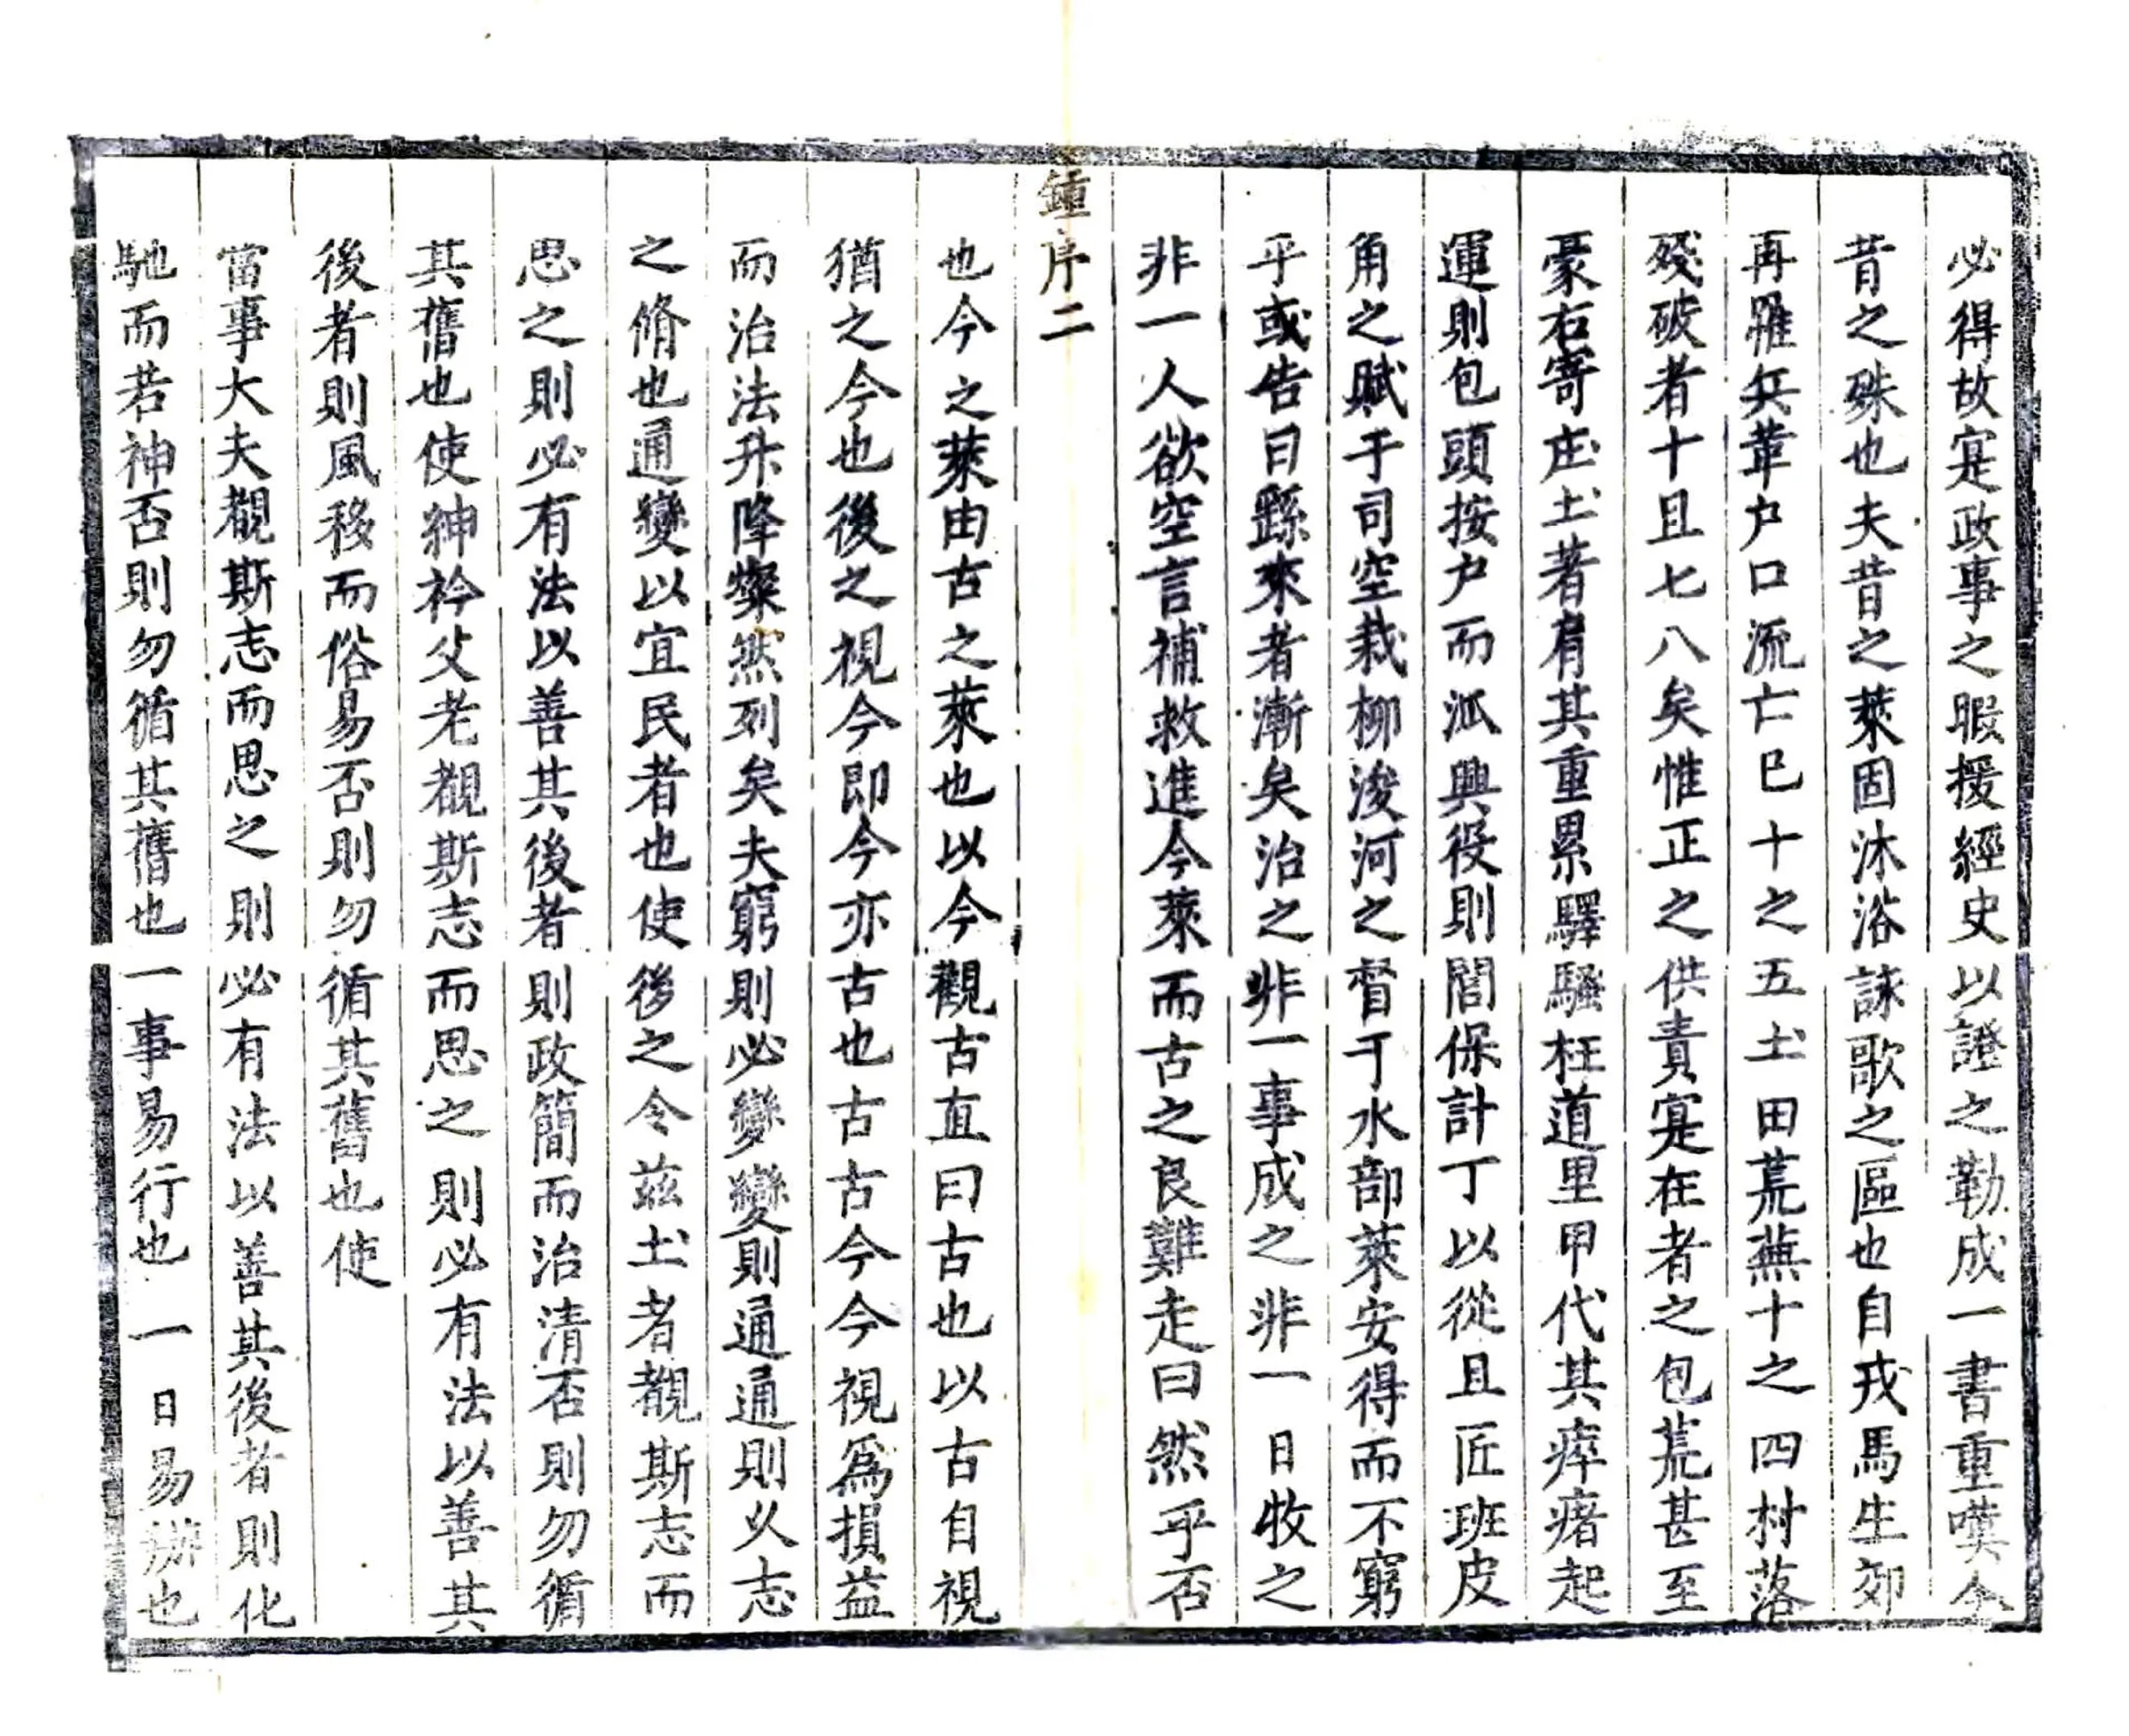 必得故寔政事之暇援經史以證之勒成一書重嘆今
昔之殊也夫昔之萊固沐浴詠歌之區也自戎馬生郊
再罹兵葷户口流亡已十之五土田荒蕪十之四村落
殘破者十且七八矣惟正之供責寔在者之包荒甚至
豪右寄庄土著有其重累驛騷枉道里甲代其瘁瘏起
運則包頭按户而派興役則閭保計丁以從且匠班皮
角之賦于司空栽柳浚河之督于水部萊安得而不窮
乎或告曰繇來者漸矣治之非一事成之非一日牧之
非一人欲空言補救進今萊而古之良難走曰然乎否
鍾序二
也今之萊由古之萊也以今觀古直曰古也以古自視
猶之今也後之視今即今亦古也古古今今視爲損益
而治法升降燦然列矣夫窮則必變變則通通則乆志
之脩也通變以宜民者也使後之令茲土者覩斯志而
思之則必有法以善其後者則政簡而治清否則勿循
其舊也使紳衿父老覩斯志而思之則必有法以善其
後者則風移而俗易否則勿循其舊也使
當事大夫覩斯志而思之則必有法以善其後者則化
馳而若神否則勿循其舊也一事易行也一日易辦也